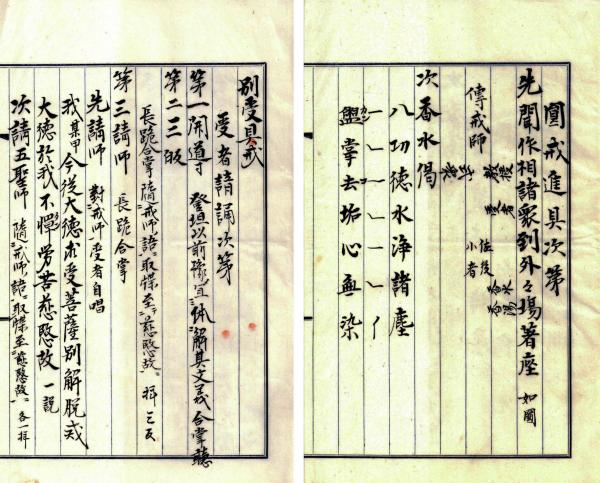 圓戒進具次第
先聞作相諸衆到外々場著座 如圖
傳戒師
佐後
小者
香水
香湯
次香水偈
八功德水淨諸塵
盥掌去垢心無染
別受具戒
受者請誦次第
第一開導 登壇以前豫宜
解其文義合掌聽
第二三皈
長跪合掌隨戒師語取牒至慈愍故 拜三反
第三請師 長跪合掌
先請師 對戒師受者自唱
我某甲今從大德求受菩薩別解脱戒
大德於我不憚勞苦慈愍故 一説
次請五聖師 隨戒師語取牒至慈愍故 各一拜